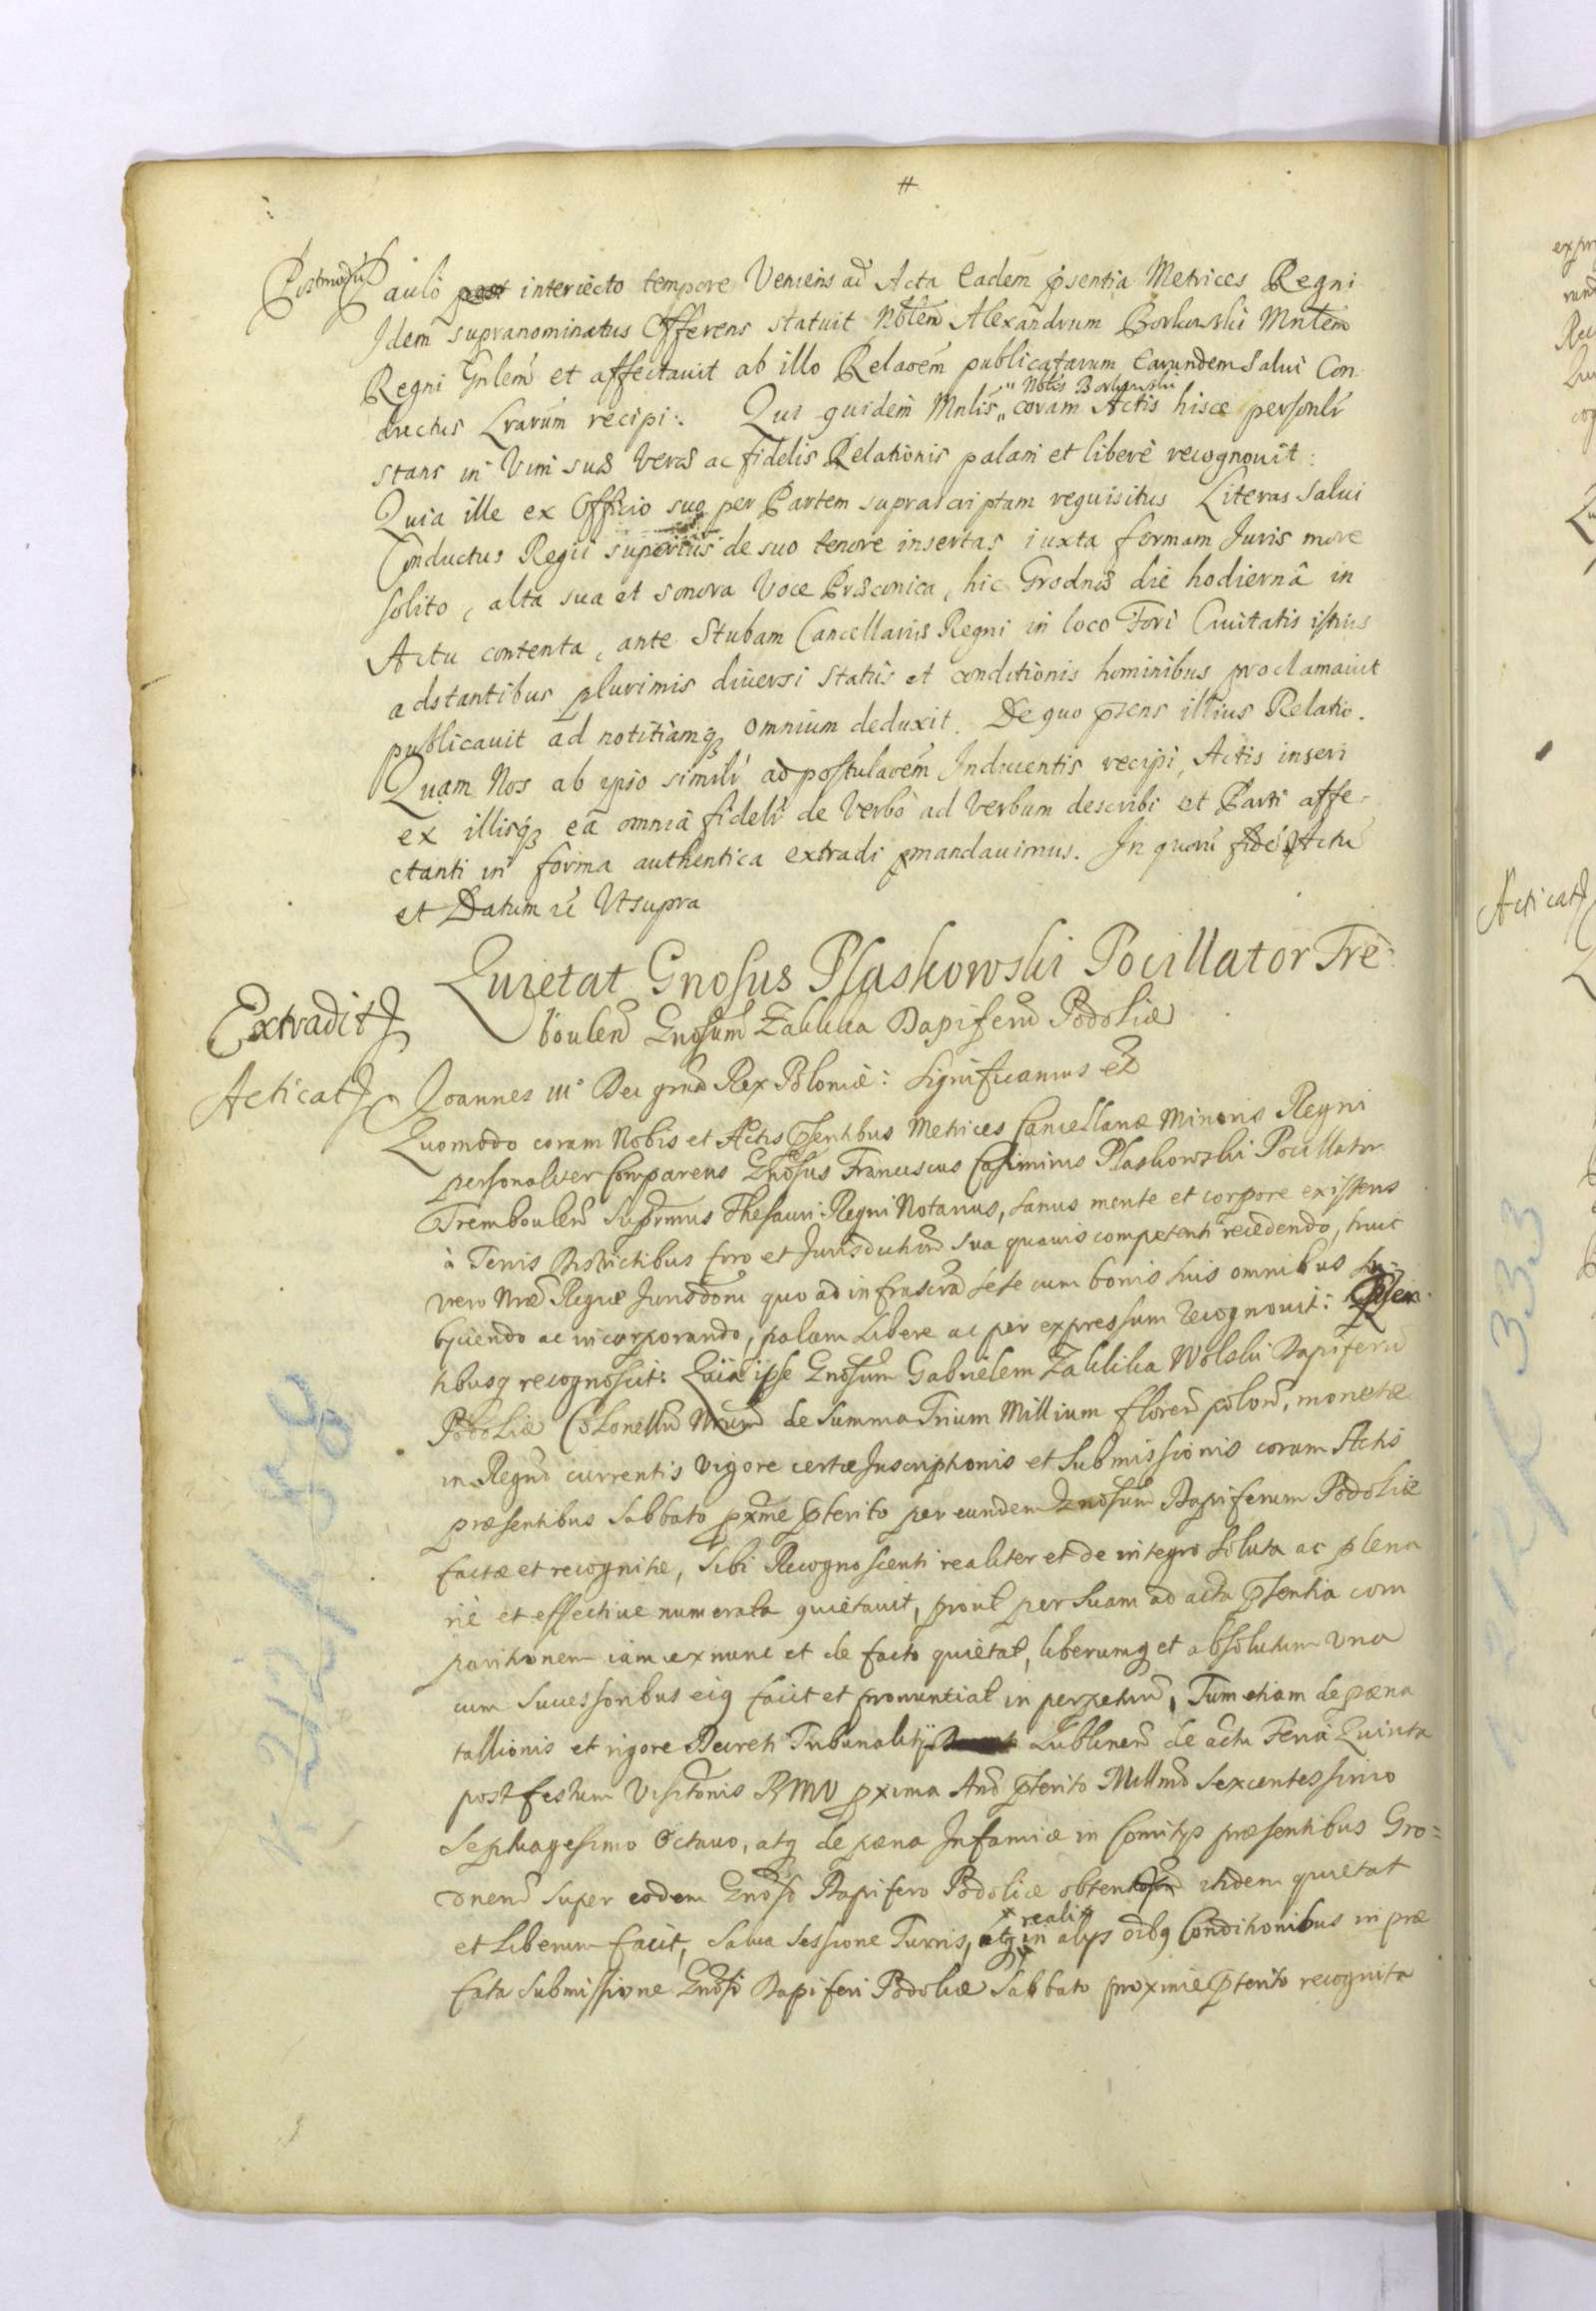 #
Postmodũ
Paulò post interiecto tempore Veniens ad Acta Eadem psentia Metrices Regni
Idem supranominatus Offerens statuit Nobłem Alexandrum Borkowski Mnłem
Regni Gnłem et affectauit ab illo Relaoem publicatarum Earundem Salui Con
ductus Lrarum recipi: Qui quidem Mnlis „ coram Actis hisce personlr
„ Nobłis Borkowski
stans in Vim suæ veræ ac fidelis Relationis palam et liberè recognouit:
Quia ille ex Officio suo per Partem suprascriptam requisitus Literas Salui
Conductus Regii superius de suo tenore insertas iuxta formam Juris more
solito, alta sua et sonora Voce Præconica, hic Grodnæ die hodiernâ in
Actu contenta, ante Stubam Cancellariis Regni in loco Fori Ciuitatis istius
adstantibus plurimis diuersi statûs et conditionis hominibus proclamauit
publicauit ad notitiamq3 omnium deduxit. De quo psens illius Relatio.
Quam Nos ab ipso simili ad postulaoem Inducentis recipi, Actis inseri
ex illisq3 eã omnia fidelr de Verbo ad Verbum describi et Parti affe-
ctanti in forma authentica extradi pmandauimus. In quorũ fidẽ Actũ
et Datum ut Vtsupra
Quietat Gnosus Plaskowski Pocillator Tre-
boulen Gnosum Zaklika Dapiferũ Podoliæ
Extradit
Acticat
Joannes III° Dei grã Rex Poloniæ: Significamus et
Quomodo coram Nobis et Actis psentibus Metrices Cancellariæ Minoris Regni
personaliter Comparens Gnosus Franciscus Casimirus Plaskowski Pocillator
Tremboulen Supremus Thesauri Regni Notarius, sanus mente et corpore existens
à Terris Districtibus foro et Jurisdictione sua quauis competenti recedendo, huic
vero Nræ Regiæ Jurisdõni quo ad infrascra sese cum bonis suis omnibus su-
bijciendo ac incorporando, palam Libere ac per expressum recognouit: psen
tibusq recognoscit: Quia ipse Gnosum Gabrielem Zaklika Wolski Dapiferũ
Podoliæ Colonellũ Nrum de Summa Trium Millium floren polon, monetæ
in Regno currentis Vigore certæ Inscriptionis et Submissionis coram Actis
præsentibus Sabbato pxime pterito per eundem Gnosum Dapiferum Podoliæ
factæ et recognitæ, sibi Recognoscenti realiter et de integro soluta ac plena
riè et effectiue numerata quietauit, prout per suam ad acta psentia com
paritionem iam ex nunc et de facto quietat, liberumq et absolutum vna
cum Successoribus eiq facit et pronuntiat in perpetuũ, Tum etiam de pæna
tallionis et rigore Decreti Tribunalitij Lublinen de actu Feria Quinta
post festum Visitõnis BMV pxima Anõ pterito Millmo Sexcentessimo
Septuagesimo Octauo, atq de pæna Infamiæ in Comitijs præsentibus Gro=
dnen super eodem Gnoso Dapifero Podoliæ obtent itidem quietat
et Liberum facit, salua sessione Turris, atq in alijs oibq Conditionibus in præ
reali
fata Submissione Gnosi Dapiferi Podoliæ Sabbato proximè pterito recognita
Acticat